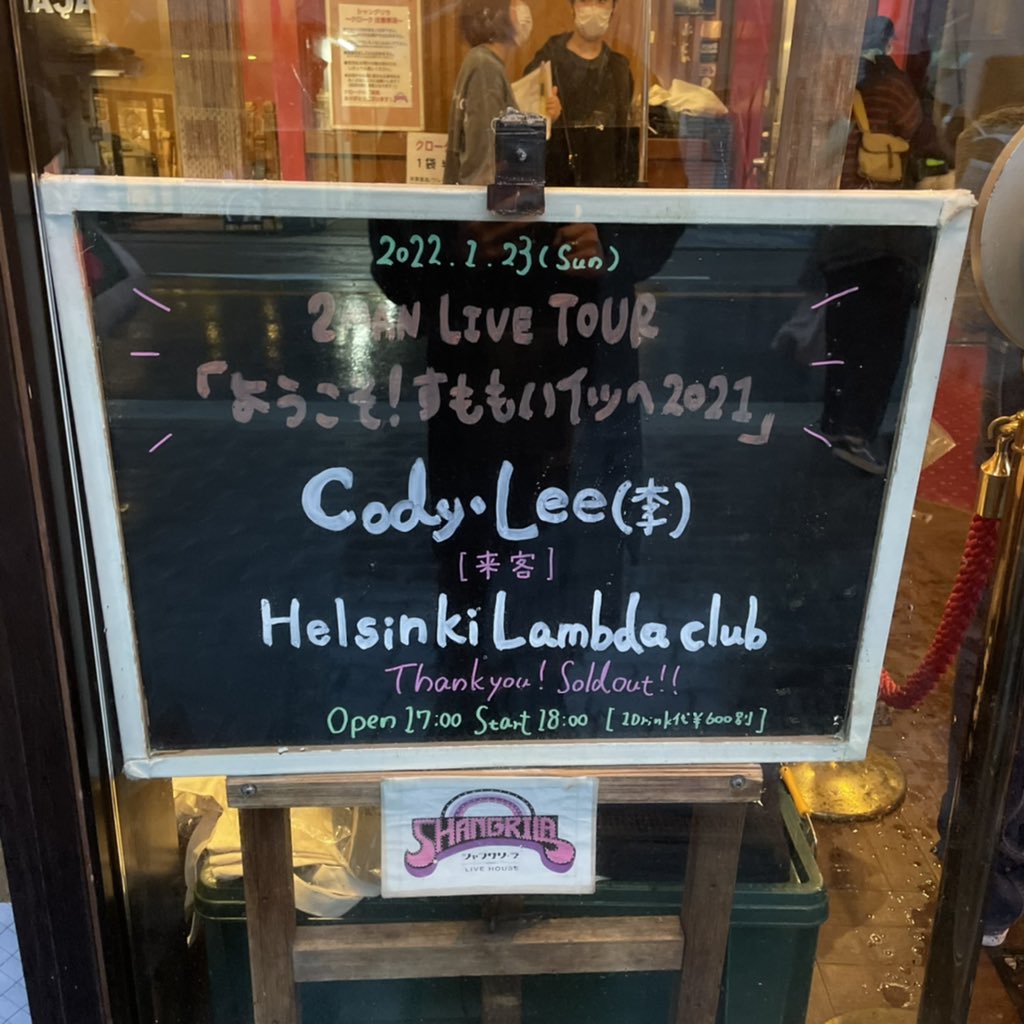 シャングリラ
〜クローク 注意事項〜
クローク
1袋
2022.1.23(Sun)
2MAN LIVE TOUR
「ようこそ!すももハイツへ2021」
Cody・Lee(李)
[来客]
Helsinki Lambda club
Thank you! Sold out!!
Open 17:00 Start 18:00 [1Drink代¥600別]
SHANGRILA
シャングリ・ラ
LIVE HOUSE